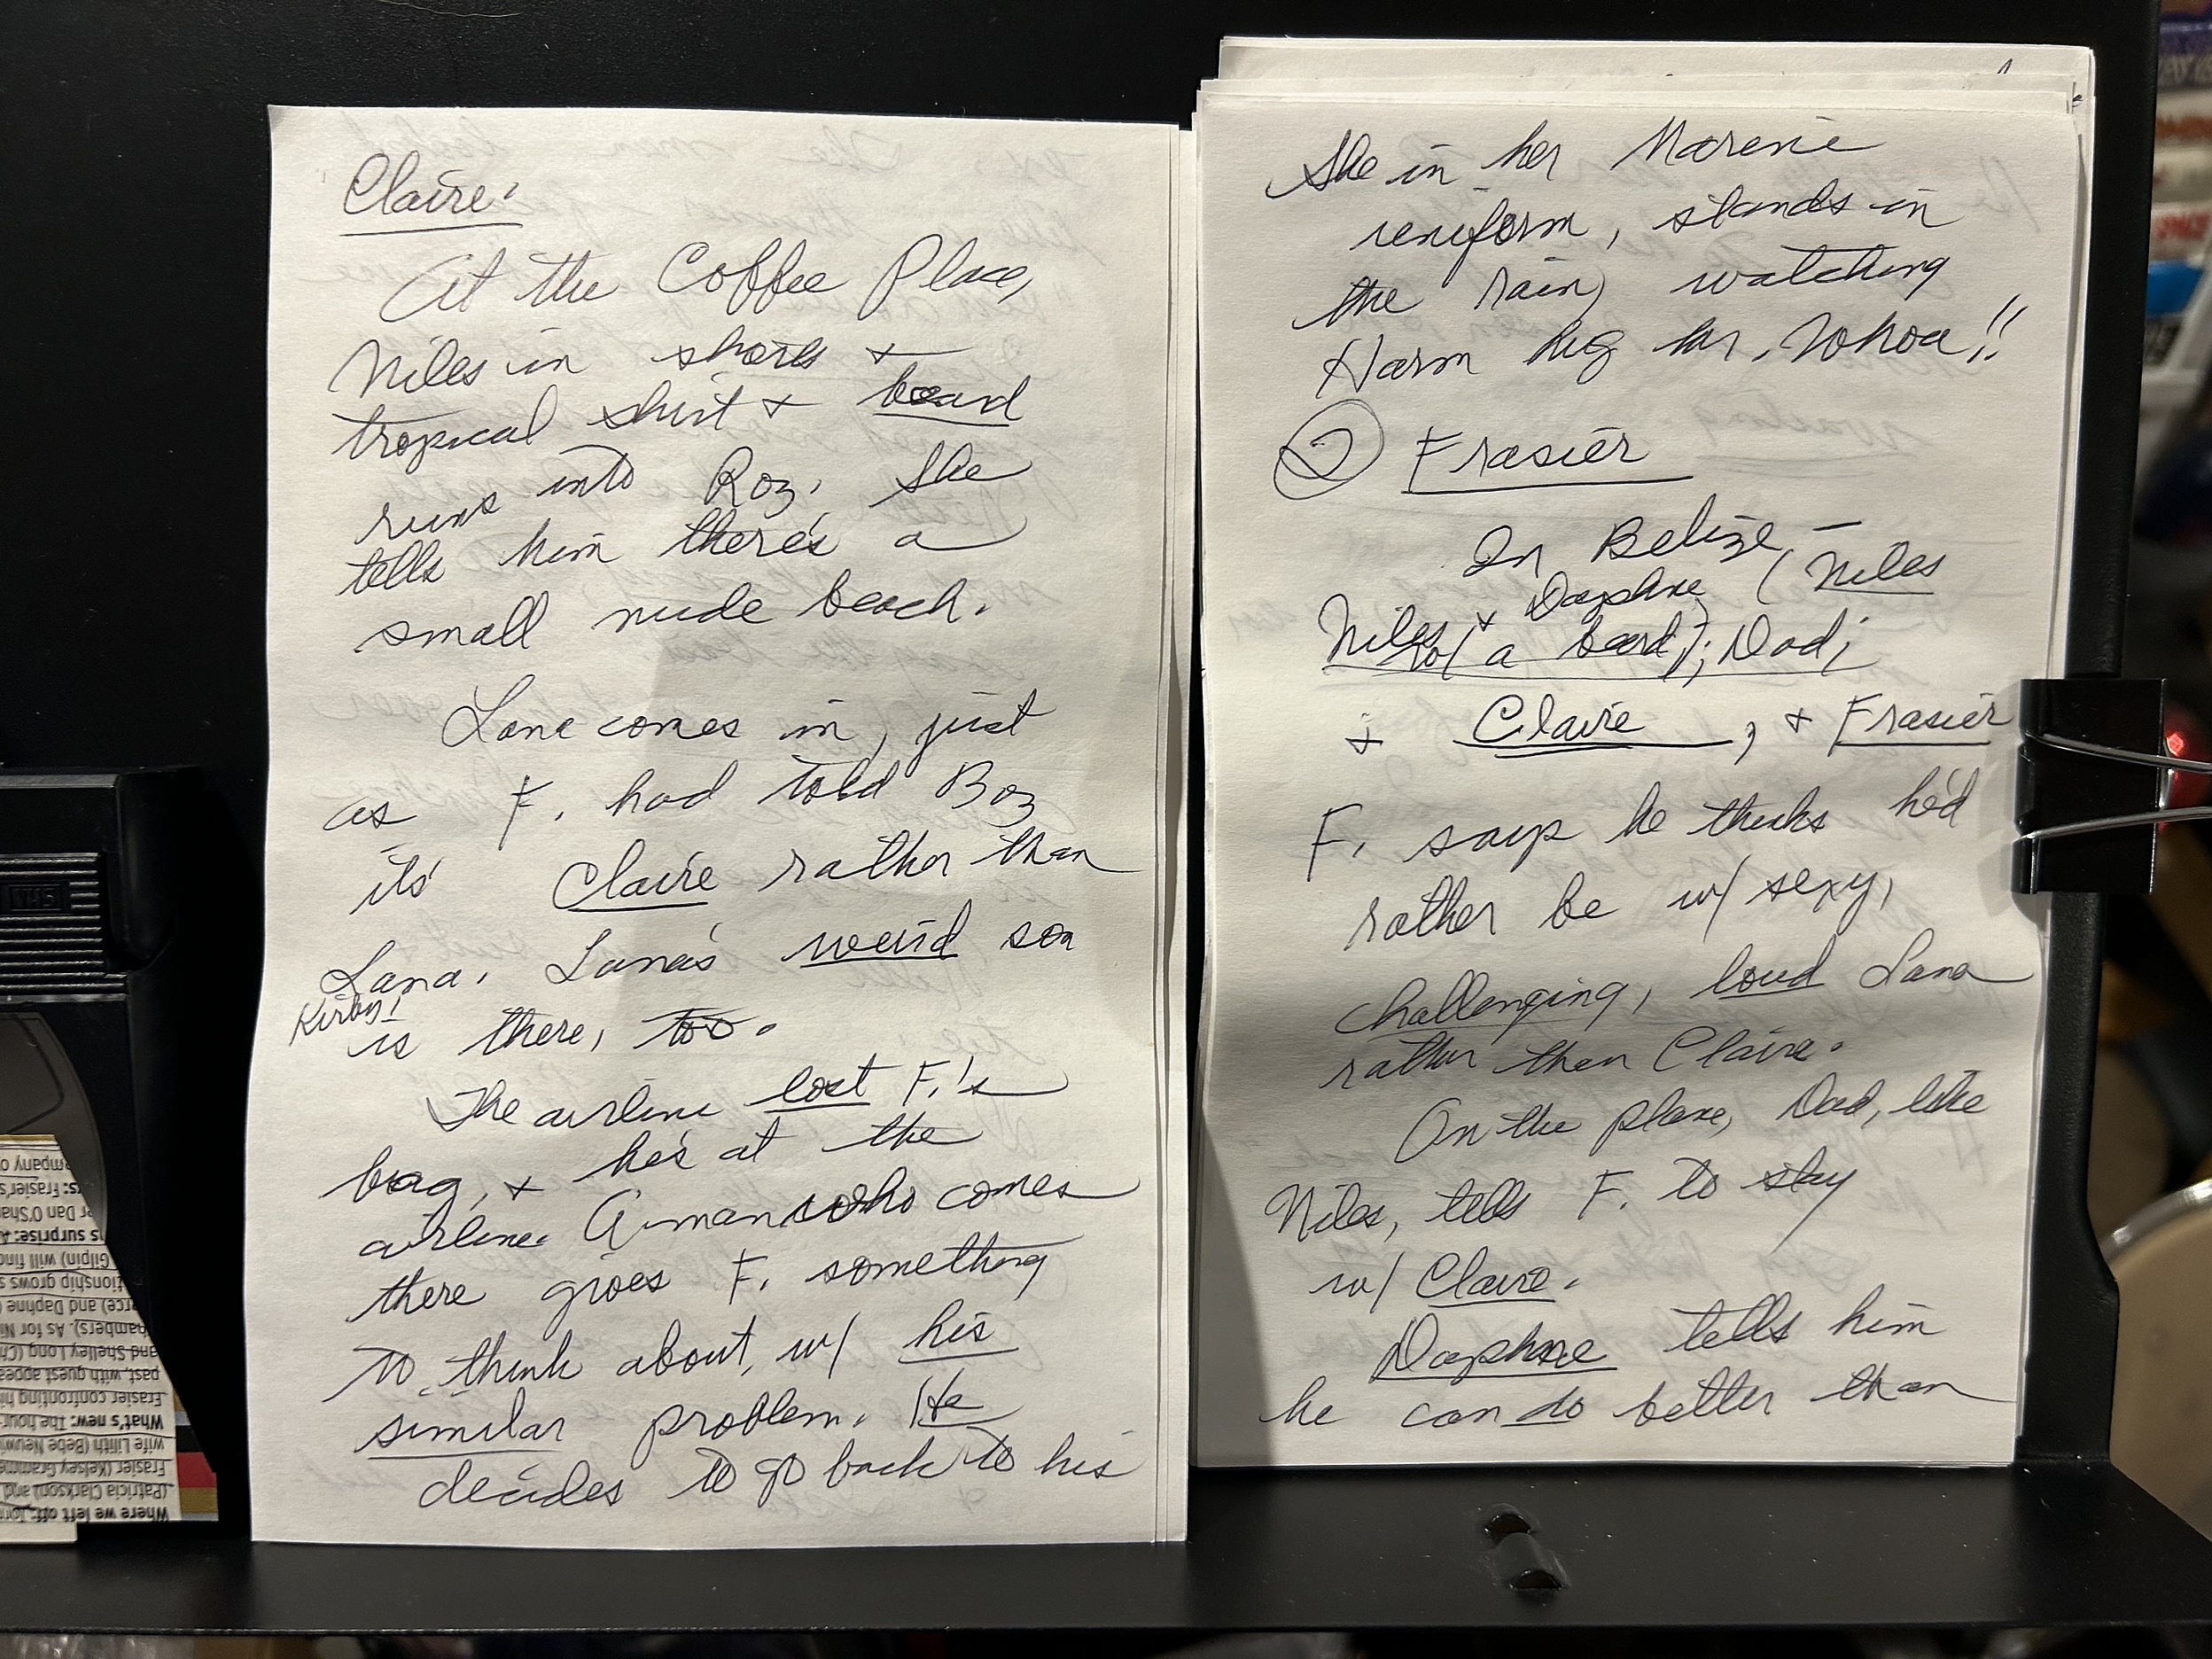 Claire.
At the Coffee Place,
Niles in shorts +
tropical shirt + beard
runs into Roz. She
tells him there's a
small nude beach.
Lana comes in, just
as F. had told Roz
it's Claire rather than
Lana. Lana's weird son
Kirby!
is there, too.
The airline lost F.'s
bag, + he's at the
airline. A man who comes
there gives F. something
to think about, w/ his
similar problem. He
decides to go back to his
She in her Marine
uniform, stands in
the rain, watching
Harm hug her. Whoa!!
② Frasier
In Belize –
Niles + Daphne (Niles
w/ a beard); Dad;
+ Claire, + Frasier
F. says he thinks he'd
rather be w/ sexy,
challenging, loud Lana
rather than Claire.
On the plane, Dad, like
Niles, tells F. to stay
w/ Claire.
Daphne tells him
he can do better than
VHS
Where we left off:
(Patricia Clarkson) and
Frasier (Kelsey Gramme
wife Lilith (Bebe Neuwi
What's new: The hour-
Frasier confronting hi
past, with guest appea
and Shelley Long (C
hambers). As for Ni
erce) and Daphne (
tionship grows s
Gilpin) will find
s surprise: A
er Dan O'Sha
rs: Frasier's
ompany o